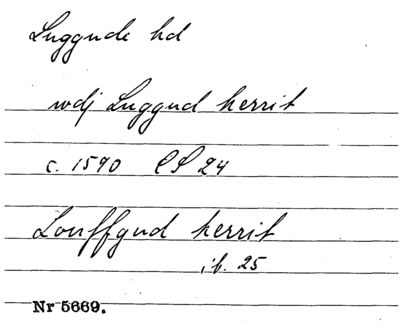 Luggude hd
wdj Luggud herrit
c. 1570 CS 24
Louffgud herrit
ib. 25
Nr 5669.